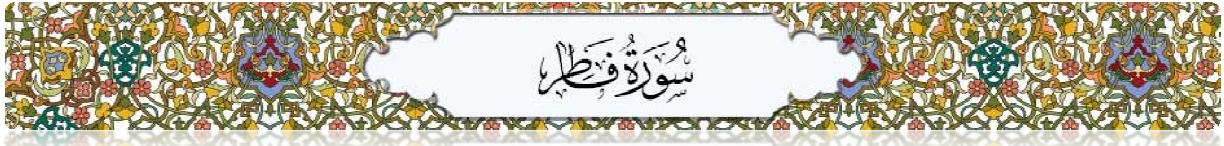 سُورَةُ فَاطِر